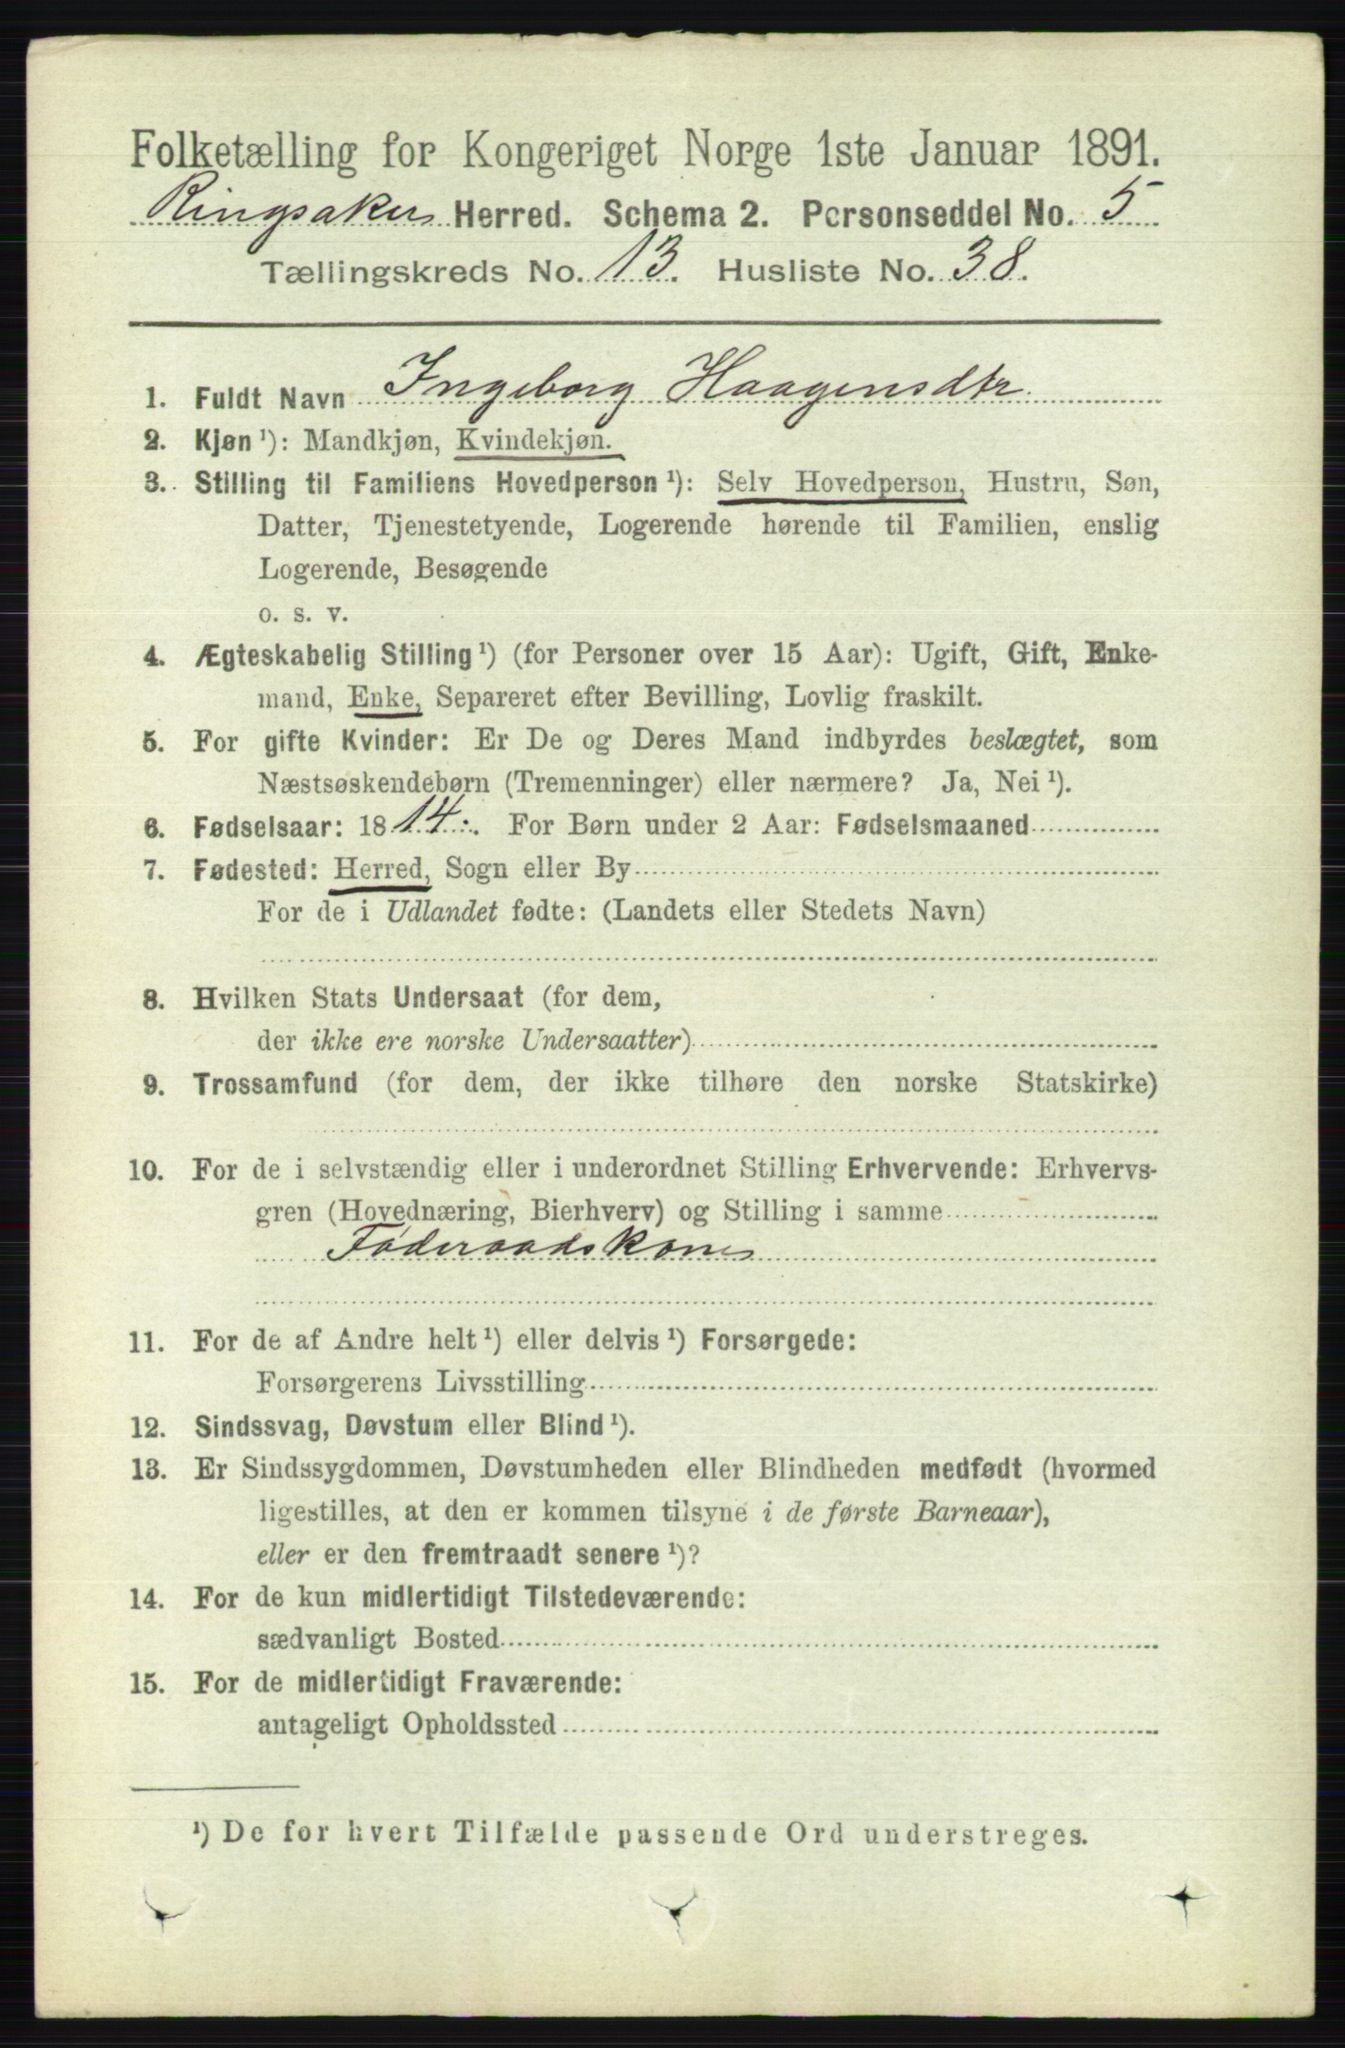 Folketælling for Kongeriget Norge 1ste Januar 1891.
Ringsaker Herred. Schema 2. Personseddel No. 5
Tællingskreds No. 13. Husliste No. 38.
1. Fuldt Navn Ingeborg Haagensdtr.
2. Kjøn ¹): Mandkjøn, Kvindekjøn.
3. Stilling til Familiens Hovedperson ¹): Selv Hovedperson, Hustru, Søn,
Datter, Tjenestetyende, Logerende hørende til Familien, enslig
Logerende, Besøgende
o. s. v.
4. Ægteskabelig Stilling ¹) (for Personer over 15 Aar): Ugift, Gift, Enke-
mand, Enke, Separeret efter Bevilling, Lovlig fraskilt.
5. For gifte Kvinder: Er De og Deres Mand indbyrdes beslægtet, som
Næstsøskendebørn (Tremenninger) eller nærmere? Ja, Nei ¹).
6. Fødselsaar: 1814. For Børn under 2 Aar: Fødselsmaaned
7. Fødested: Herred, Sogn eller By
For de i Udlandet fødte: (Landets eller Stedets Navn)
8. Hvilken Stats Undersaat (for dem,
der ikke ere norske Undersaatter)
9. Trossamfund (for dem, der ikke tilhøre den norske Statskirke)
10. For de i selvstændig eller i underordnet Stilling Erhvervende: Erhvervs-
gren (Hovednæring, Bierhverv) og Stilling i samme
Føderaadskone
11. For de af Andre helt ¹) eller delvis ¹) Forsørgede:
Forsørgerens Livsstilling
12. Sindssvag, Døvstum eller Blind ¹).
13. Er Sindssygdommen, Døvstumheden eller Blindheden medfødt (hvormed
ligestilles, at den er kommen tilsyne i de første Barneaar),
eller er den fremtraadt senere ¹)?
14. For de kun midlertidigt Tilstedeværende:
sædvanligt Bosted
15. For de midlertidigt Fraværende:
antageligt Opholdssted
¹) De for hvert Tilfælde passende Ord understreges.